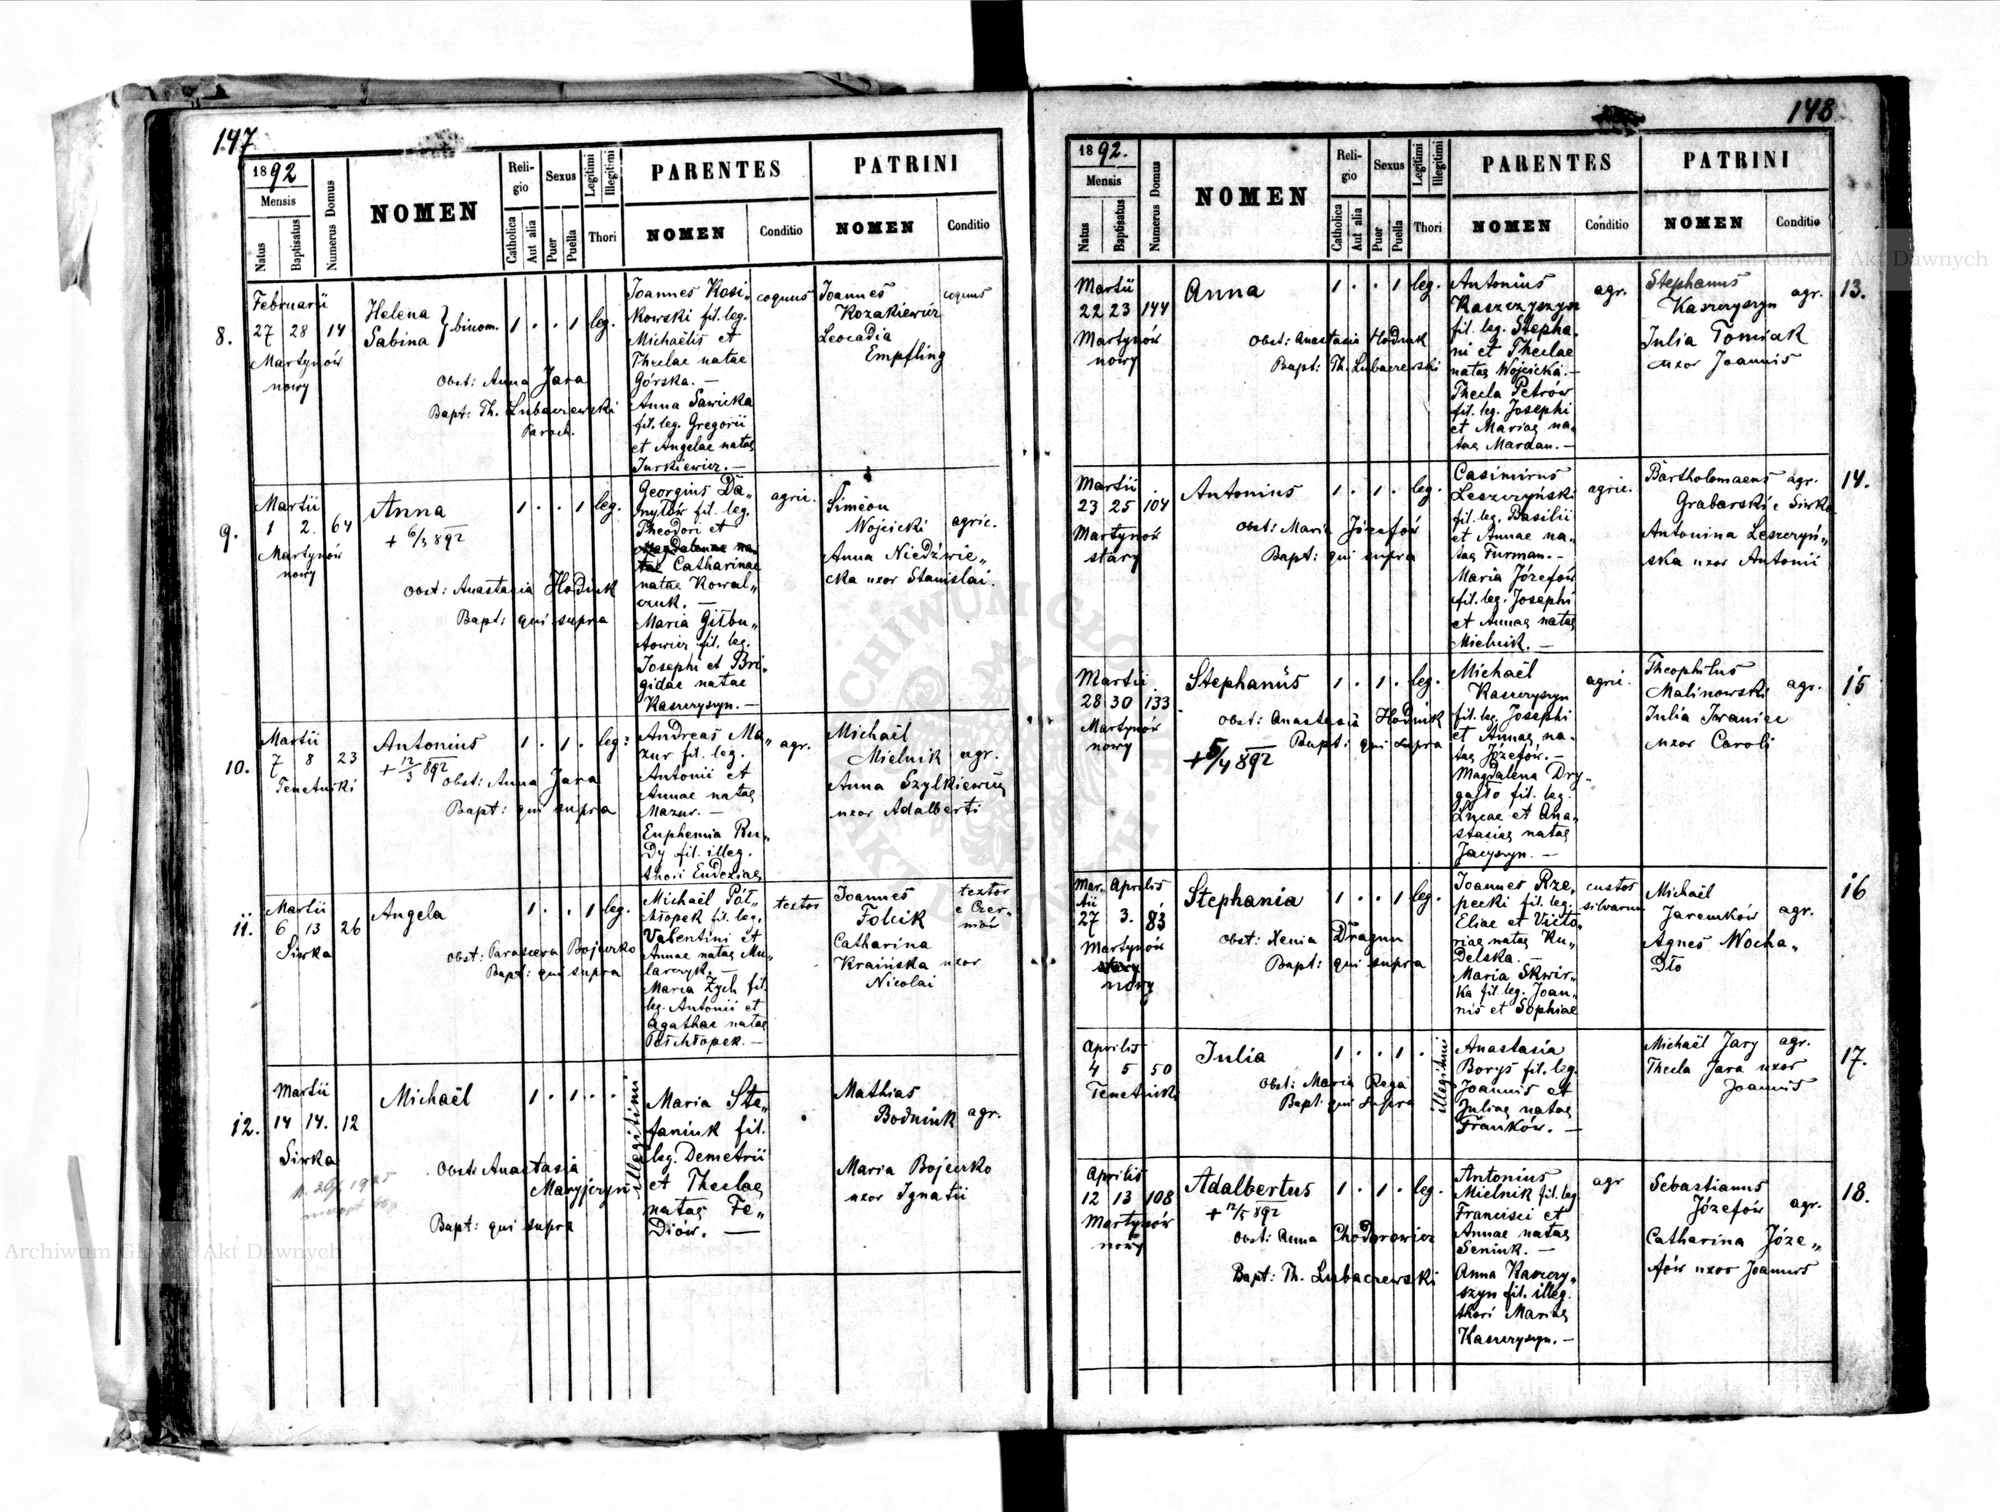 147
1892
Mensis
Natus
Baptisatus
Numerus Domus
NOMEN
Reli-
gio
Catholica
Aut alia
Sexus
Puer
Puella
Legitimi
Illegitimi
Thori
PARENTES
NOMEN
Conditio
PATRINI
NOMEN
Conditio
8.
Februarii
27 28 14
Martynów
nowy
Helena
Sabina } binom.
1 . . 1 leg.
Obst: Anna Jara
Bapt: Th. Lubaczewski
Paroch.
Joannes Kosi-
kowski fil. leg.
Michaëlis et
Theclae natae
Górska. —
Anna Sawicka
fil. leg. Gregorii
et Angelae natae
Jurkiewicz. —
coquus
Joannes
Kozakiewicz
Leocadia
Empfling
coquus
9.
Martii
1 2. 64
Martynów
nowy
Anna
+ 6/3 892
1 . . 1 leg.
Obst: Anastasia Hodiuk
Bapt: qui supra
Georgius Da„
nyłów fil. leg.
Theodori et
Magdalenae na-
tae Catharinae
natae Kowal„
czuk. —
Maria Gitbu„
towicz fil. leg.
Josephi et Bri„
gidae natae
Kaszczyszyn. —
agric.
Simeon
Wojcicki agric.
Anna Niedźwie„
cka uxor Stanislai.
10.
Martii
7 8 23
Tenetniki
Antonius
+ 12/3 892
1 . 1 . leg.
Obst: Anna Jara
Bapt: qui supra
Andreas Ma„
zur fil. leg.
Antonii et
Annae natae
Mazur. —
Euphemia Ru„
dy fil. illeg.
thori Eudoxiae
agr.
Michaël
Mielnik agr.
Anna Szylkiewicz
uxor Adalberti
11.
Martii
6 13 26
Siwka
Angela
1 . . 1 leg.
Obst: Parasceva Bojeczko
Bapt: qui supra
Michaël Pół„
chłopek fil. leg.
Valentini et
Annae natae Mu„
larczyk. —
Maria Zych fil.
leg. Antonii et
Agathae natae
Półchłopek. —
textor
Joannes
Folcik
Catharina
Kraińska uxor
Nicolai
textor
e Czer„
niów
12.
Martii
14 14. 12
Siwka
Michaël
1 . 1 . .
illegitimi
Obst: Anastasia
Maryjczyn
Bapt: qui supra
Maria Ste„
faniuk fil.
leg. Demetrii
et Theclae
natae Fe„
diów. —
Mathias
Bodniuk agr.
Maria Bojeczko
uxor Ignatii
148
1892.
Mensis
Natus
Baptisatus
Numerus Domus
NOMEN
Reli-
gio
Catholica
Aut alia
Sexus
Puer
Puella
Legitimi
Illegitimi
Thori
PARENTES
NOMEN
Conditio
PATRINI
NOMEN
Conditio
Martii
22 23 144
Martynów
nowy
Anna
1 . . 1 leg.
Obst: Anastasia Hodiuk
Bapt: Th. Lubaczewski
Antonius
Kaszczyszyn
fil. leg. Stepha„
ni et Theclae
natae Wojcicka. —
Thecla Petrów
fil. leg. Josephi
et Mariae na„
tae Mardan. —
agr.
Stephanus
Kaszczyszyn agr.
Julia Tomiak
uxor Joannis
13.
Martii
23 25 104
Martynów
stary
Antonius
1 . 1 . leg.
Obst: Maria Józefów
Bapt: qui supra
Casimirus
Leszczyński
fil. leg. Basilii
et Annae na„
tae Furman. —
Maria Józefów
fil. leg. Josephi
et Annae natae
Mielnik. —
agric.
Bartholomaeus agr.
Grabarski e Siwka
Antonina Leszczyń„
ska uxor Antonii
14.
Martii
28 30 133
Martynów
nowy
Stephanus
+ 5/4 892
1 . 1 . leg.
Obst: Anastasia Hodiuk
Bapt: qui supra
Michaël
Kaszczyszyn
fil. leg. Josephi
et Annae na„
tae Józefów. —
Magdalena Dry„
gajło fil. leg.
Lucae et Ana„
stasiae natae
Jacyszyn. —
agric.
Theophilus
Malinowski agr.
Julia Iwaniec
uxor Caroli
15
Mar- Aprilis
tii
27 3. 83
Martynów
stary
nowy
Stephania
1 . . 1 leg.
Obst: Xenia Dragun
Bapt: qui supra
Joannes Rze„
pecki fil. leg.
Eliae et Victo„
riae natae Ku„
delska. —
Maria Skwir„
ka fil. leg. Joan„
nis et Sophiae
custos
silvarum
Michaël
Jaremków agr.
Agnes Wocha„
dło
16
Aprilis
4 5 50
Tenetniki
Julia
1 . . 1 .
illegitimi
Obst: Maria Rega
Bapt: qui supra
Anastasia
Borys fil. leg.
Joannis et
Juliae natae
Franków. —
Michaël Jary agr.
Thecla Jara uxor
Joannis
17.
Aprilis
12 13 108
Martynów
nowy
Adalbertus
+ 12/5 892
1 . 1 . leg.
Obst: Anna Chodorowicz
Bapt: Th. Lubaczewski
Antonius
Mielnik fil. leg.
Francisci et
Annae natae
Seniuk. —
Anna Kaszczy„
szyn fil. illeg.
thori Mariae
Kaszczyszyn. —
agr
Sebastianus
Józefów agr.
Catharina Józe„
fów uxor Joannis
18.
Archiwum Główne Akt Dawnych
Archiwum Główne Akt Dawnych
ARCHIWUM GŁÓWNE AKT DAWNYCH